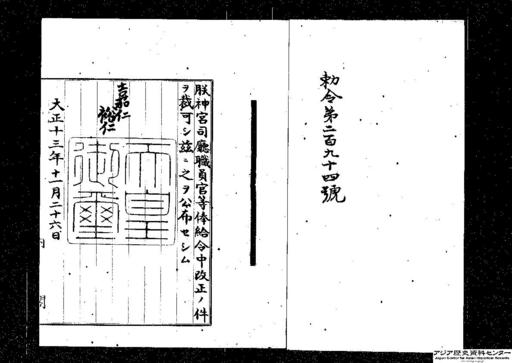 勅令第二百九十四號
朕神宮司廳職員官等俸給令中改正ノ件
ヲ裁可シ茲ニ之ヲ公布セシム
嘉仁
裕仁
天皇
御璽
大正十三年十一月二十六日
内閣
アジア歴史資料センター
Japan Center for Asian Historical Records